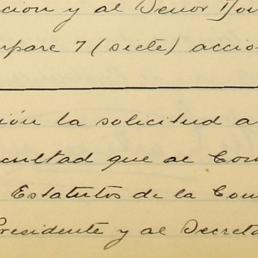 cion y al Señor Don
mpare 7 (siete) accio
ión la solicitud a
cultad que al Con
Estatutos de la Com
residente y al Secreta